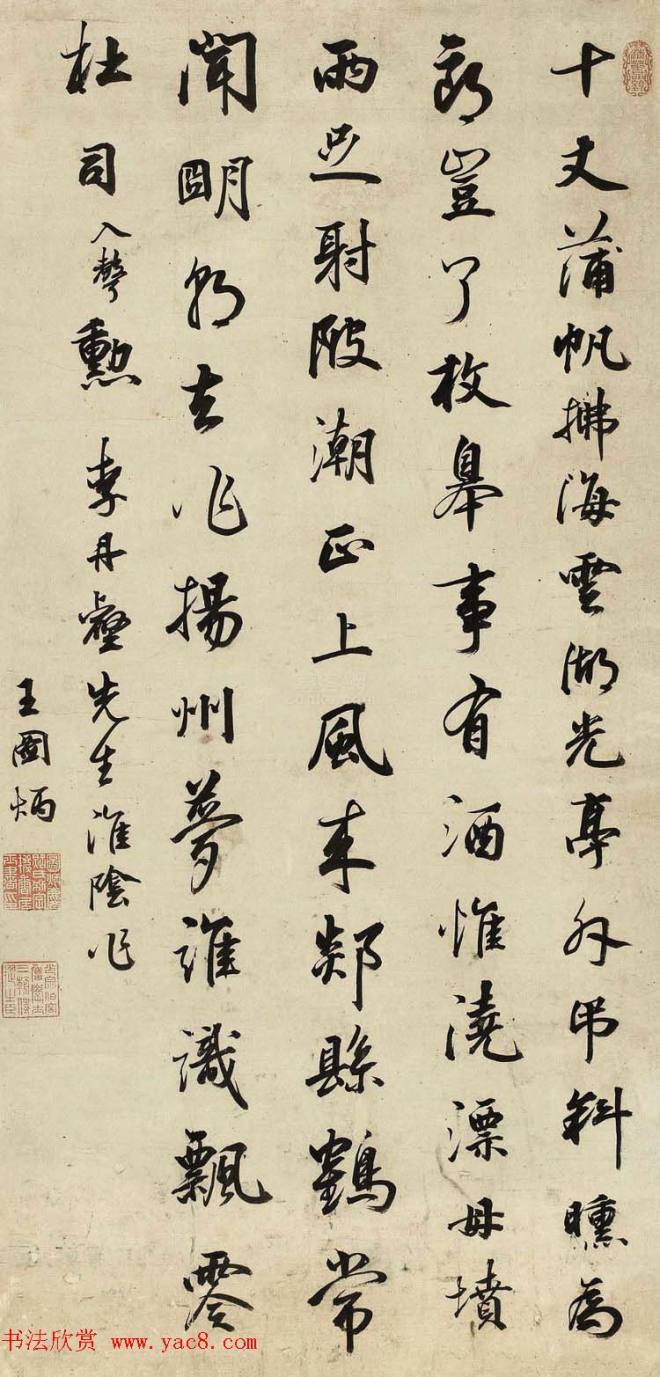 十丈蒲帆拂海雲湖光亭外吊斜曛為
郎豈了枚皋事有酒惟澆漂母墳
雨足射陂潮正上風來郯縣鶴常
聞明朝去作揚州夢誰識飄零
杜司入聲勳 李丹壑先生淮陰作
王圖炳
书法欣赏 www.yac8.com